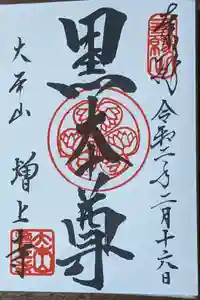 奉拝
令和二年二月十六日
黒本尊
大本山
増上寺